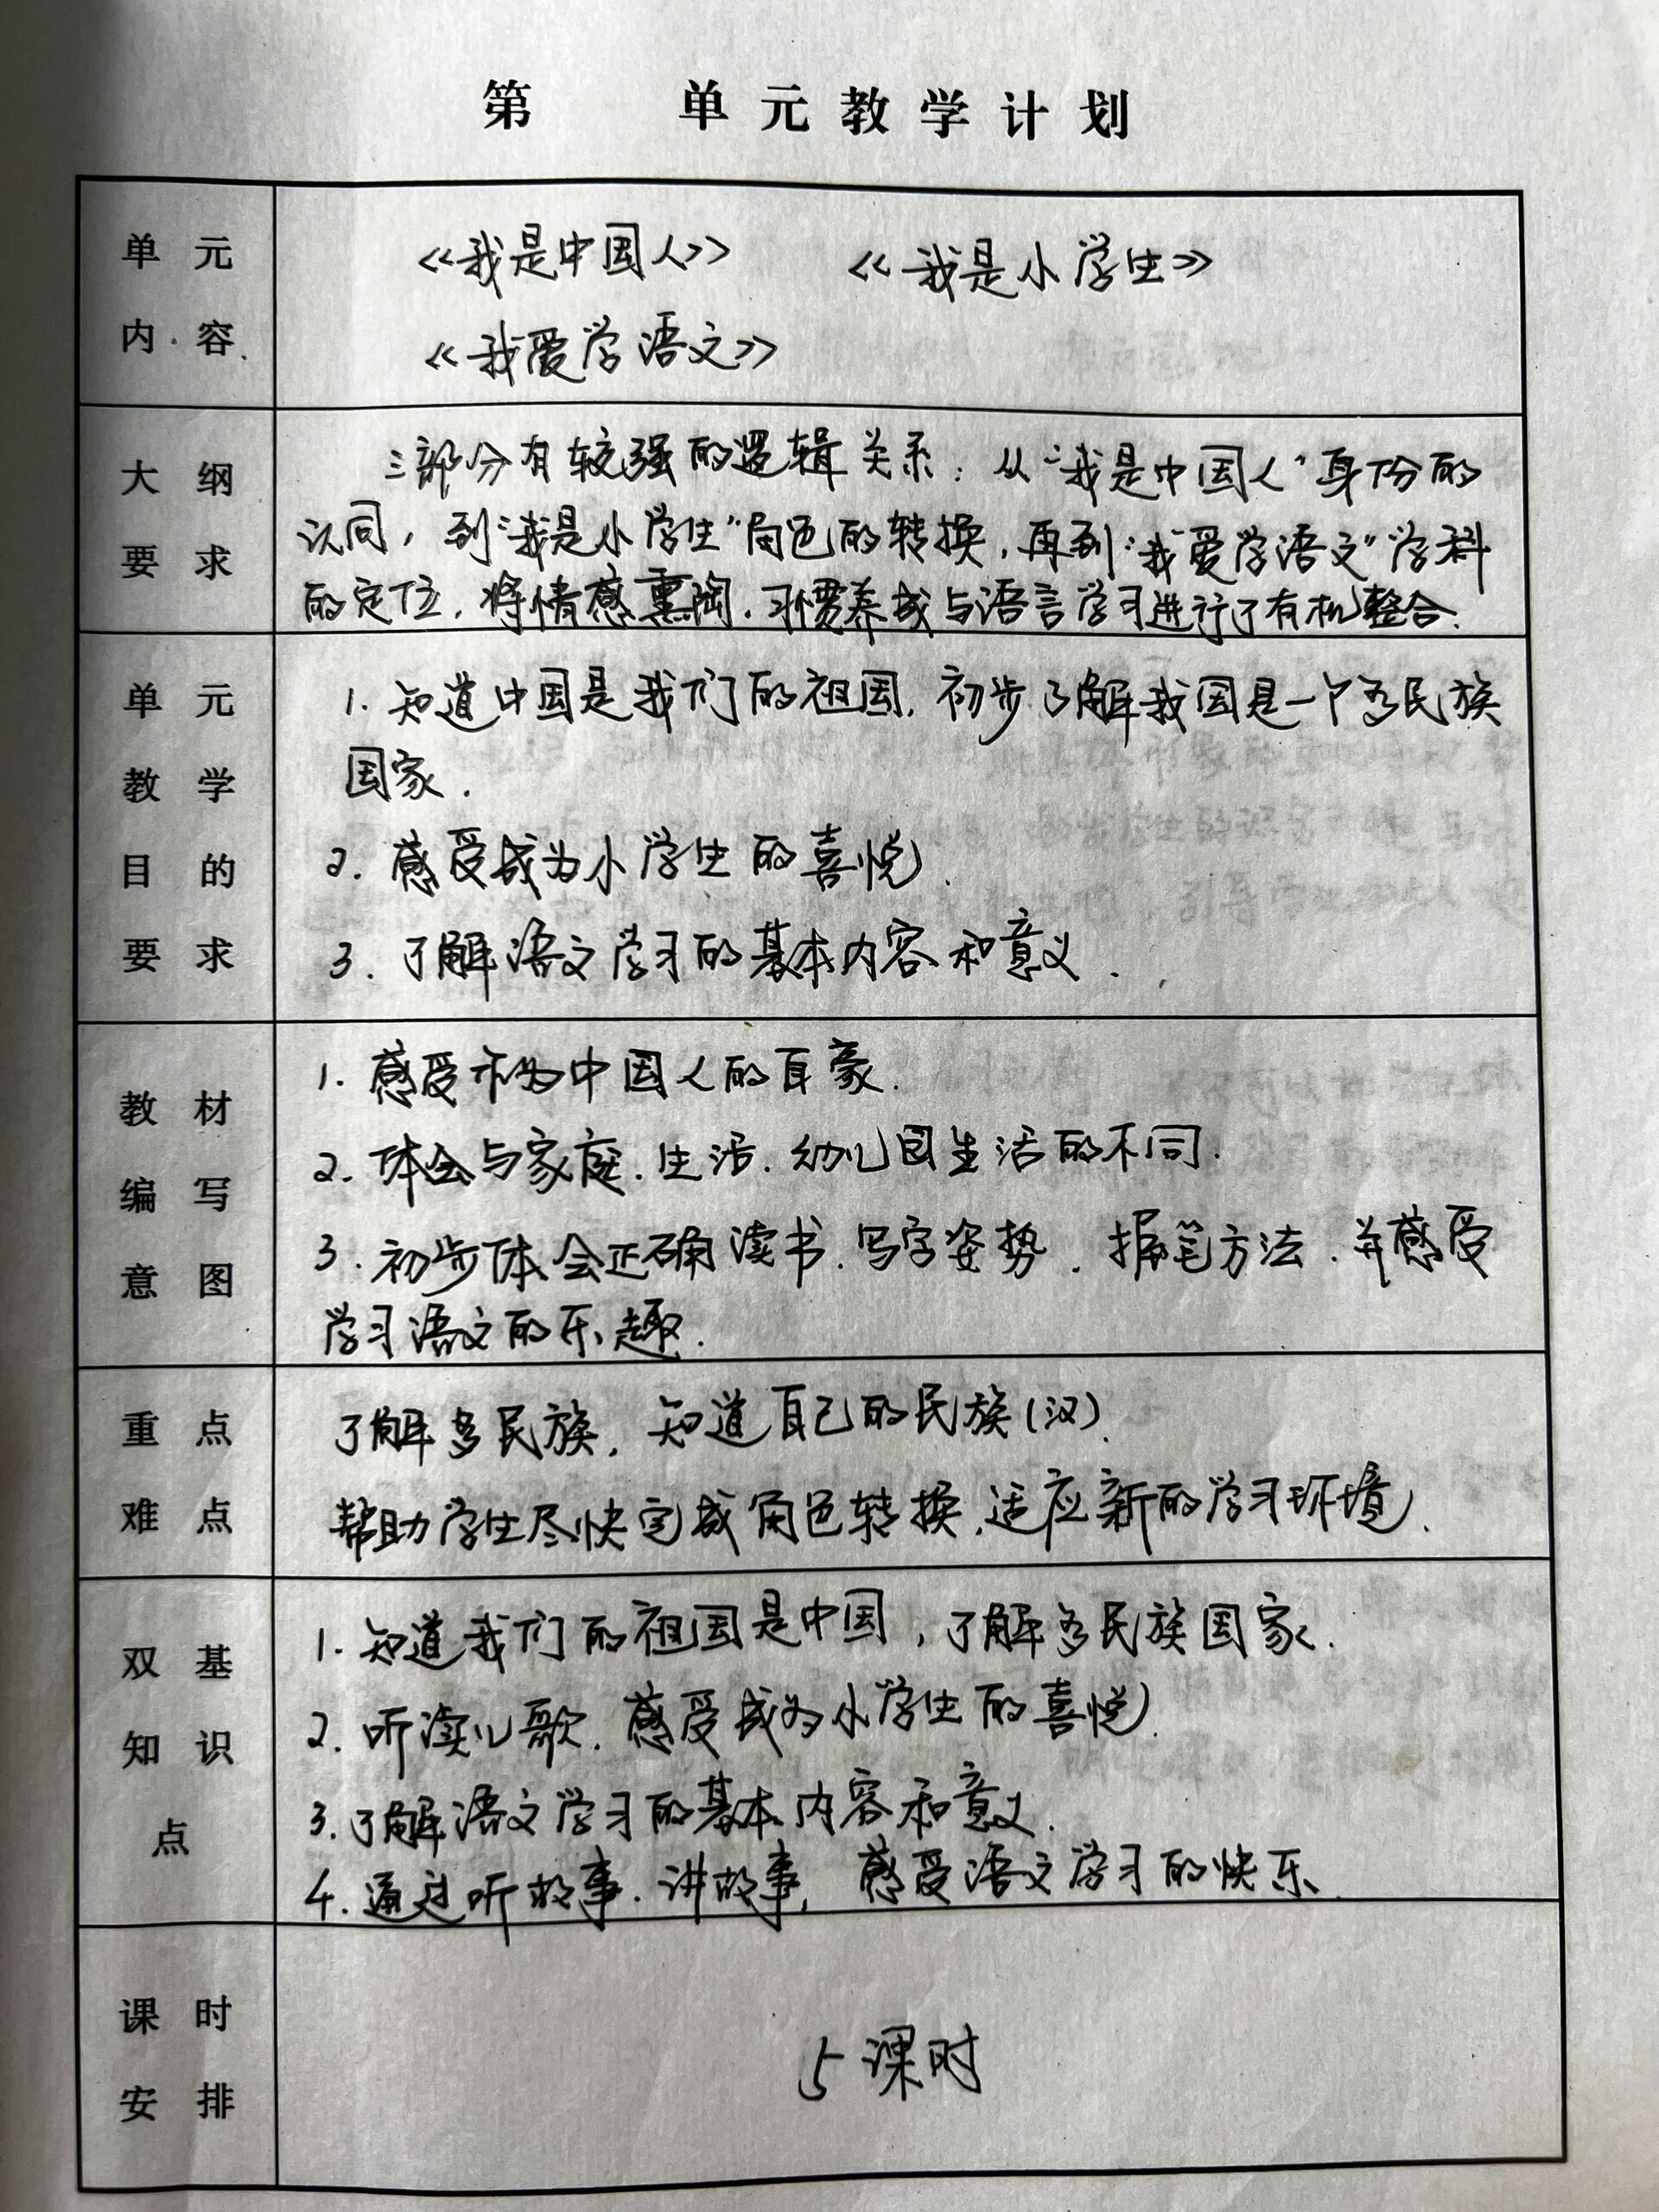 第 单元教学计划
单元
内容
《我是中国人》 《我是小学生》
《我爱学语文》
大纲
要求
三部分有较强的逻辑关系：从“我是中国人”身份的
认同，到“我是小学生”角色的转换，再到“我爱学语文”学科
的定位，将情感熏陶、习惯养成与语言学习进行了有机整合.
单元
教学
目的
要求
1. 知道中国是我们的祖国，初步了解我国是一个多民族
国家.
2. 感受成为小学生的喜悦.
3. 了解语文学习的基本内容和意义.
教材
编写
意图
1. 感受作为中国人的自豪.
2. 体会与家庭、生活、幼儿园生活的不同.
3. 初步体会正确读书、写字姿势、握笔方法、并感受
学习语文的乐趣.
重点
难点
了解多民族，知道自己的民族(汉).
帮助学生尽快完成角色转换，适应新的学习环境.
双基
知识
点
1. 知道我们的祖国是中国，了解多民族国家.
2. 听读儿歌，感受成为小学生的喜悦.
3. 了解语文学习的基本内容和意义.
4. 通过听故事、讲故事，感受语文学习的快乐.
课时
安排
5课时